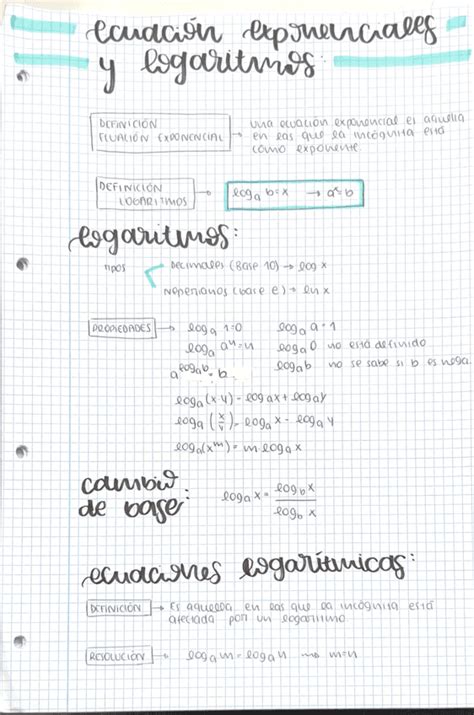 ecuación exponenciales
y logaritmos:
DEFINICIÓN
ECUACIÓN EXPONENCIAL → una ecuación exponencial es aquella
en las que la incógnita está
como exponente.
DEFINICIÓN
LOGARITMOS → logₐ b = x → aˣ = b
logaritmos:
TIPOS
DECIMALES (BASE 10) → log x
Neperianos (base e) → ln x
PROPIEDADES → logₐ 1 = 0 logₐ a = 1
logₐ aⁿ = n logₐ 0 no está definido
a^logₐb = b logₐ b no se sabe si b es nega.
logₐ (x·y) = logₐ x + logₐ y
logₐ (x/y) = logₐ x - logₐ y
logₐ (xᵐ) = m·logₐ x
cambio
de base: logₐ x = log_b x / log_b x
ecuaciones logarítmicas:
DEFINICIÓN → Es aquella en las que la incógnita está
afectada por un logaritmo.
RESOLUCIÓN → logₐ m = logₐ n → m = n